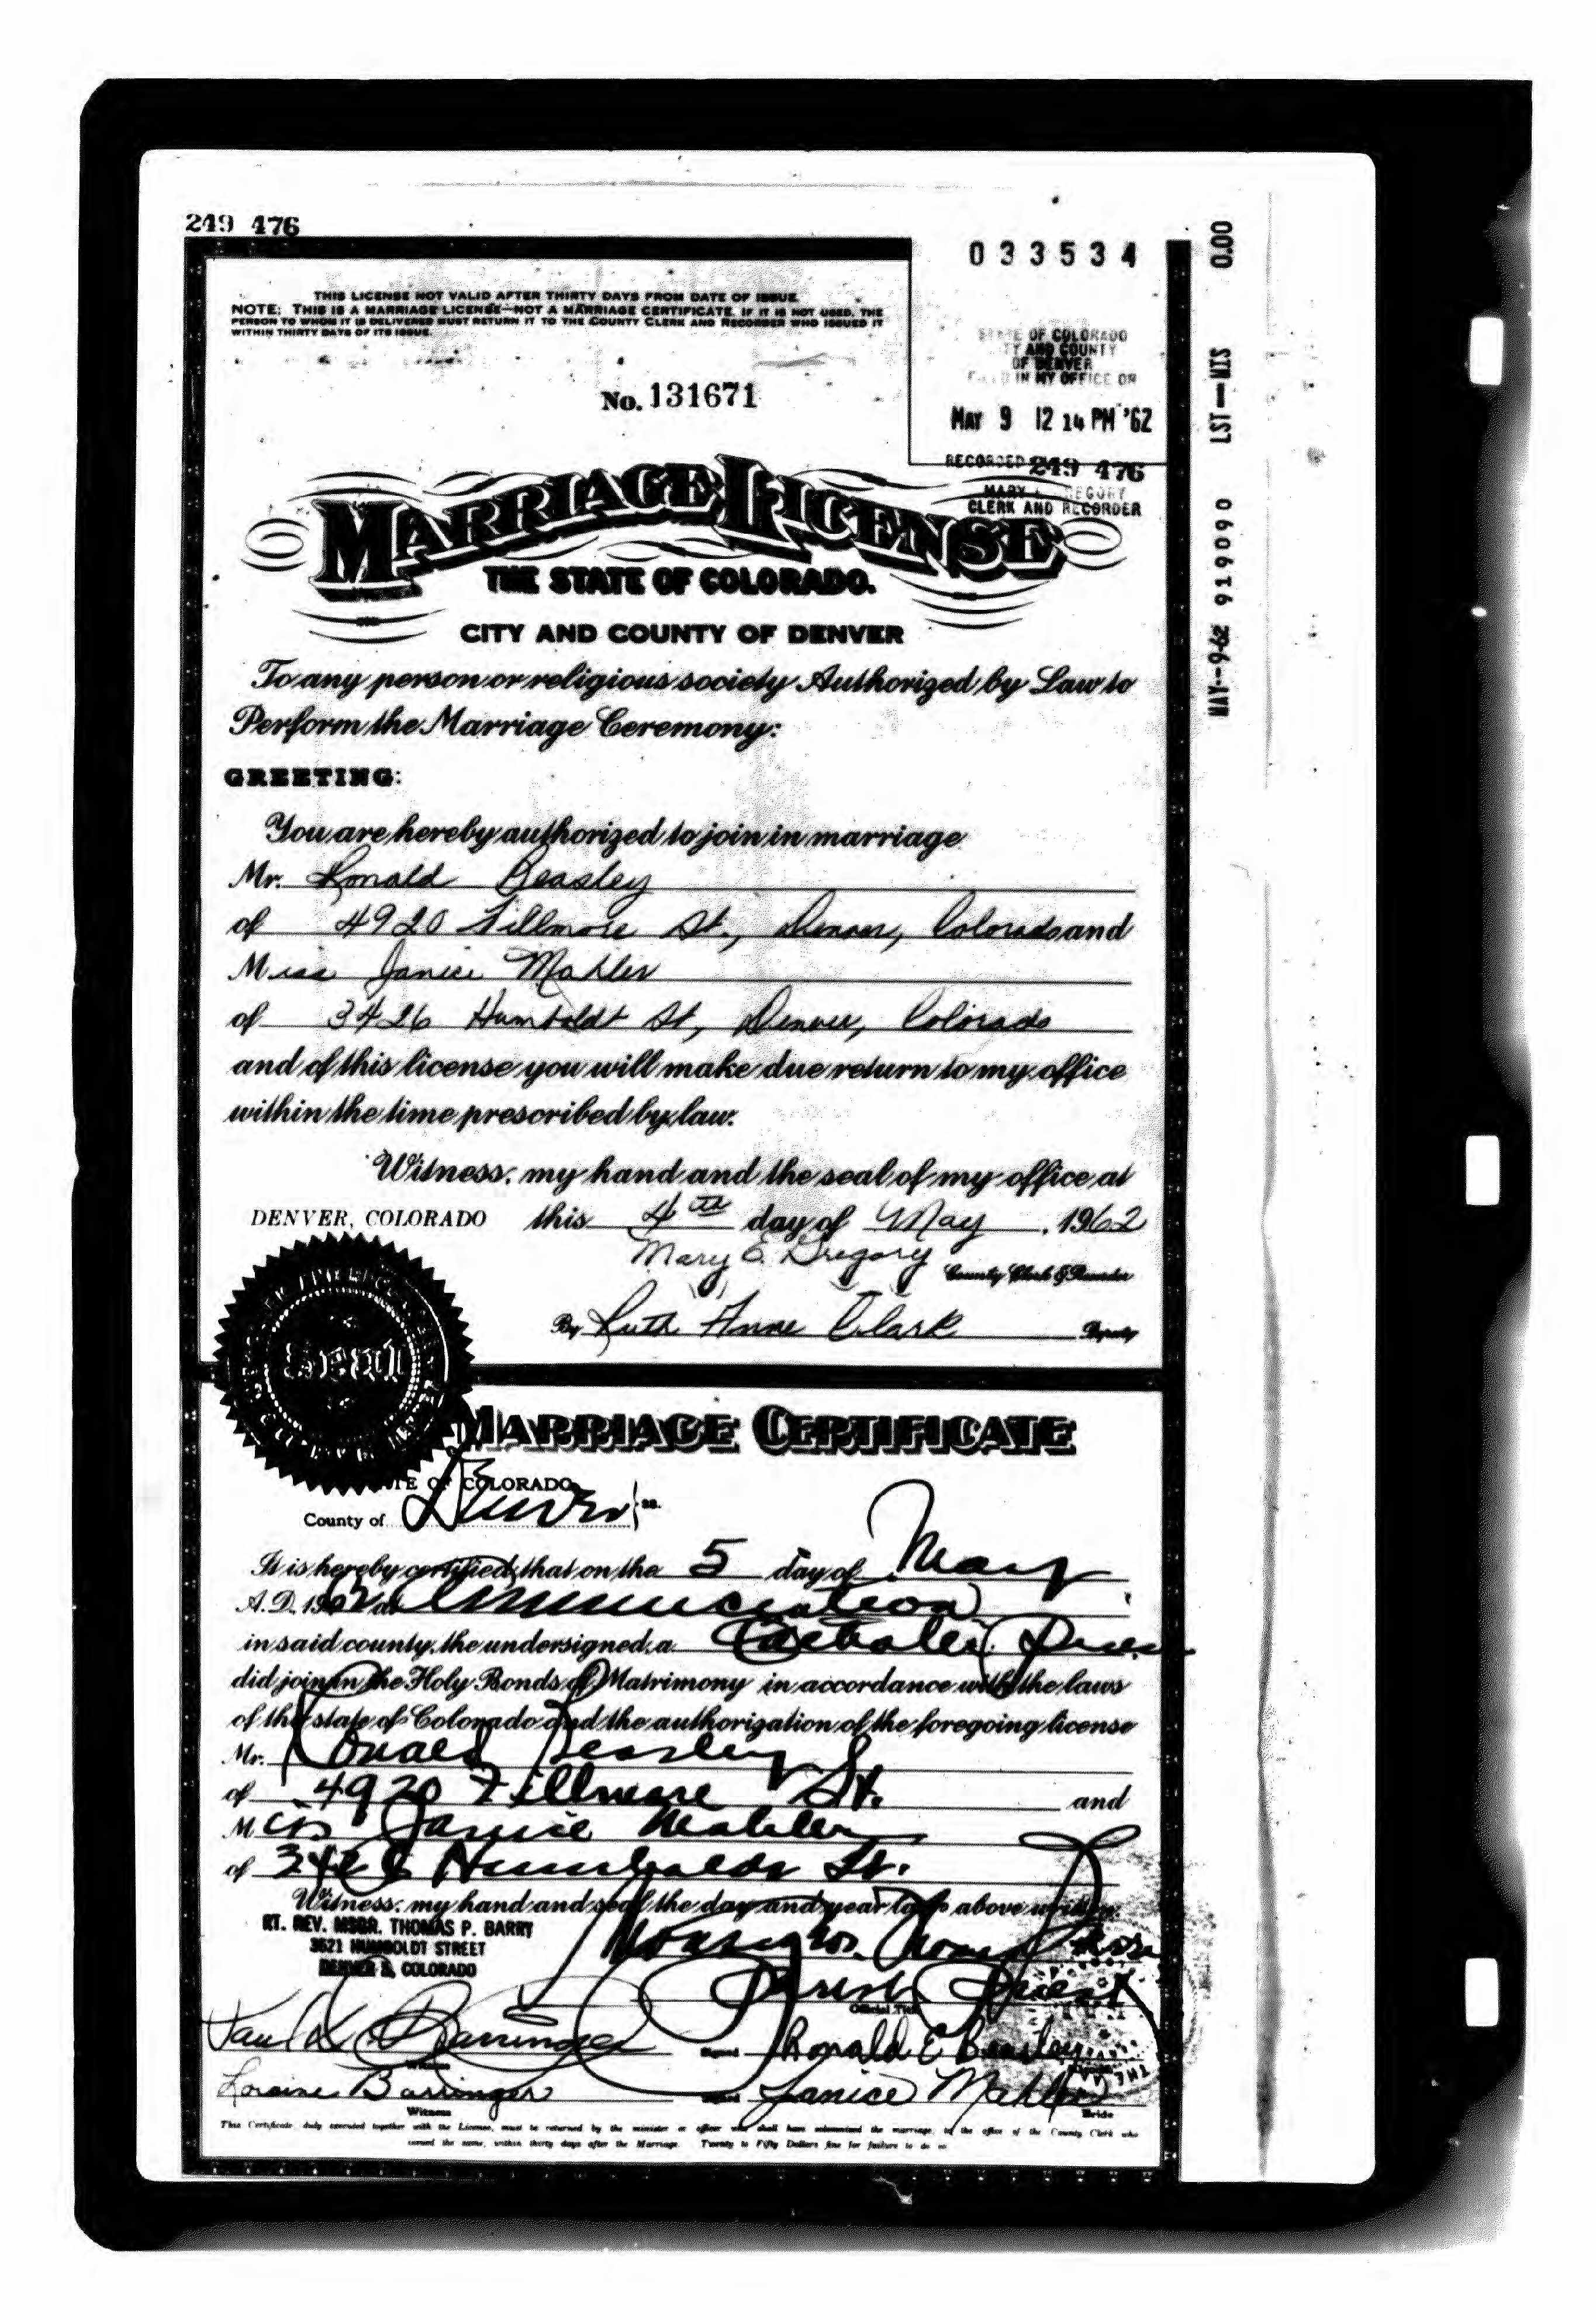 249 476
033534
THIS LICENSE NOT VALID AFTER THIRTY DAYS FROM DATE OF ISSUE.
NOTE: THIS IS A MARRIAGE LICENSE—NOT A MARRIAGE CERTIFICATE. IF IT IS NOT USED, THE
PERSON TO WHOM IT IS DELIVERED MUST RETURN IT TO THE COUNTY CLERK AND RECORDER WHO ISSUED IT
WITHIN THIRTY DAYS OF ITS ISSUE.
STATE OF COLORADO
CITY AND COUNTY
OF DENVER
FILED IN MY OFFICE ON
MAY 9 12 14 PM '62
RECORDED 249 476
MARY E. GREGORY
CLERK AND RECORDER
No. 131671
MARRIAGE LICENSE
THE STATE OF COLORADO.
CITY AND COUNTY OF DENVER
To any person or religious society Authorized by Law to
Perform the Marriage Ceremony:
GREETING:
You are hereby authorized to join in marriage
Mr. Ronald Beasley
of 4920 Fillmore St., Denver, Colorado and
Miss Janice Mahler
of 3426 Humboldt St, Denver, Colorado
and of this license you will make due return to my office
within the time prescribed by law.
Witness, my hand and the seal of my office at
DENVER, COLORADO this 4th day of May, 1962
Mary E. Gregory County Clerk & Recorder
By Ruth Anne Clark Deputy
Seal
MARRIAGE CERTIFICATE
STATE OF COLORADO
County of Denver ss.
It is hereby certified, that on the 5 day of May
A.D. 1962 at Annunciation
in said county, the undersigned, a Catholic Priest
did join in the Holy Bonds of Matrimony in accordance with the laws
of the state of Colorado and the authorization of the foregoing license
Mr. Ronald Beasley
of 4920 Fillmore St. and
Miss Janice Mahler
of 3426 Humboldt St.
Witness, my hand and seal the day and year last above written.
RT. REV. MSGR. THOMAS P. BARRY
3621 HUMBOLDT STREET
DENVER 5, COLORADO
Parish Priest
Official Title
Paul Barringer
Witness
Signed Ronald E Beasley
Loraine Barringer
Witness
Signed Janice Mahler
Bride
This Certificate, duly executed together with the License, must be returned by the minister or officer who shall have solemnized the marriage, to the office of the County Clerk who
issued the same, within thirty days after the Marriage. Twenty to Fifty Dollars fine for failure to do so
MAY--9-62 919090 LST—MIS 0.00